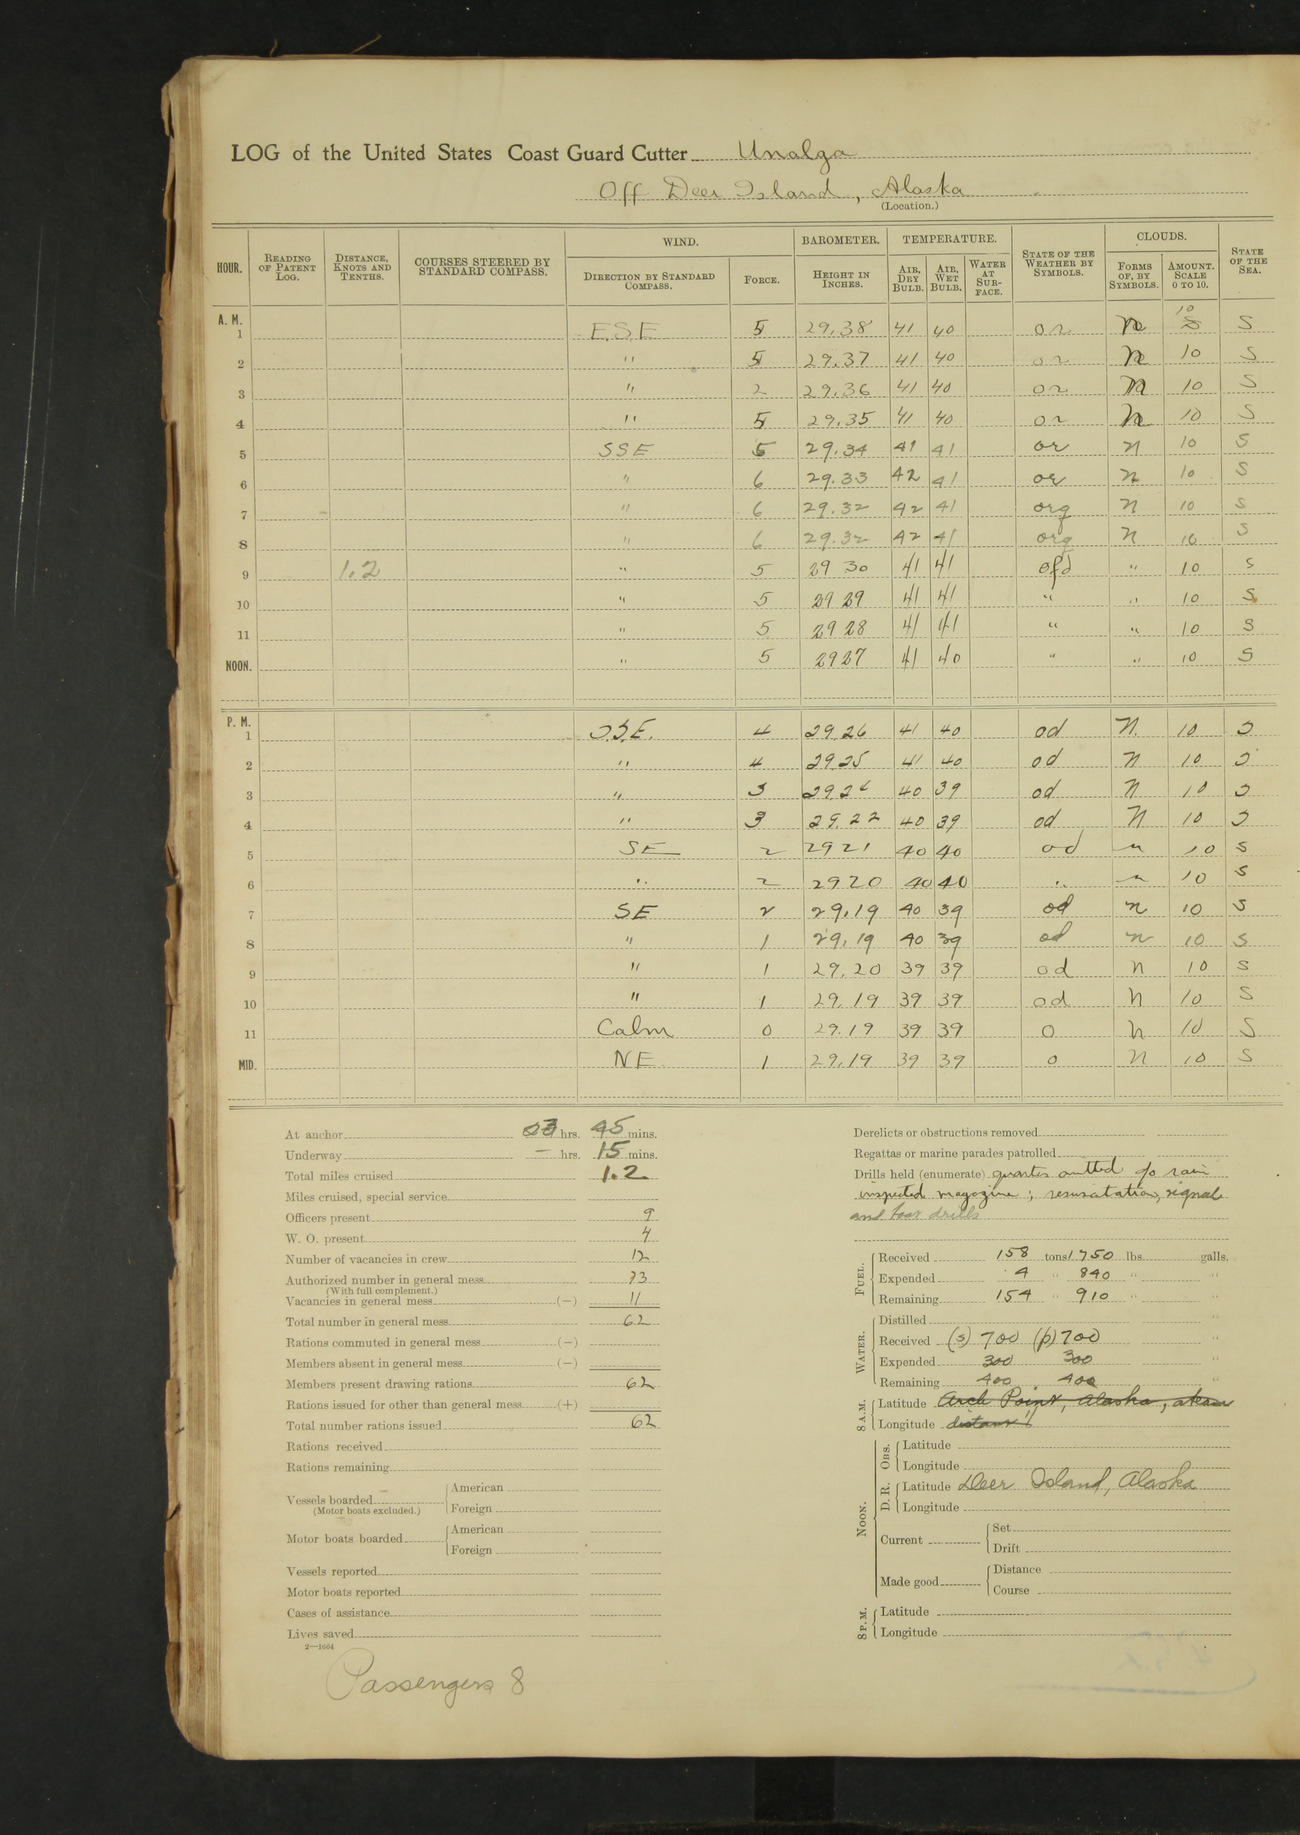 LOG of the United States Coast Guard Cutter Unalga
Off Deer Island, Alaska
(Location.)
HOUR. READING OF PATENT LOG. DISTANCE, KNOTS AND TENTHS. COURSES STEERED BY STANDARD COMPASS. WIND. DIRECTION BY STANDARD COMPASS. FORCE. BAROMETER. HEIGHT IN INCHES. TEMPERATURE. AIR, DRY BULB. AIR, WET BULB. WATER AT SURFACE. STATE OF THE WEATHER BY SYMBOLS. CLOUDS. FORMS OF, BY SYMBOLS. AMOUNT. SCALE 0 TO 10. STATE OF THE SEA.
A. M.
1 ESE 5 29.38 41 40 or n 10 S
2 " 5 29.37 41 40 or n 10 S
3 " 2 29.36 41 40 or n 10 S
4 " 5 29.35 41 40 or n 10 S
5 SSE 5 29.34 41 41 or n 10 S
6 " 6 29.33 42 41 or n 10 S
7 " 6 29.32 42 41 org n 10 S
8 " 6 29.32 42 41 org n 10 S
9 1.2 " 5 29 30 41 41 ofd " 10 S
10 " 5 29 29 41 41 " " 10 S
11 " 5 29 28 41 41 " " 10 S
NOON. " 5 29 27 41 40 " " 10 S
P. M.
1 SSE. 4 29.26 41 40 od N. 10 S
2 " 4 29.25 41 40 od N 10 S
3 " 3 29.24 40 39 od N 10 S
4 " 3 29.22 40 39 od N 10 S
5 SE 2 29 21 40 40 od n 10 S
6 " 2 29 20 40 40 " n 10 S
7 SE 2 29.19 40 39 od n 10 S
8 " 1 29.19 40 39 od n 10 S
9 " 1 29.20 39 39 od n 10 S
10 " 1 29.19 39 39 od n 10 S
11 Calm 0 29.19 39 39 o n 10 S
MID. NE. 1 29.19 39 39 o n 10 S
At anchor 23 hrs. 45 mins.
Underway — hrs. 15 mins.
Total miles cruised 1.2
Miles cruised, special service
Officers present 9
W. O. present 4
Number of vacancies in crew 12
Authorized number in general mess 73
(With full complement.)
Vacancies in general mess (—) 11
Total number in general mess 62
Rations commuted in general mess (—)
Members absent in general mess (—)
Members present drawing rations 62
Rations issued for other than general mess (+)
Total number rations issued 62
Rations received
Rations remaining
Vessels boarded (Motor boats excluded.) American
Foreign
Motor boats boarded American
Foreign
Vessels reported
Motor boats reported
Cases of assistance
Lives saved
2—1664
Passengers 8
Derelicts or obstructions removed
Regattas or marine parades patrolled
Drills held (enumerate) quarters omitted a/c rain
inspected magazine; resusatation, signal
and boat drills
FUEL. Received 158 tons 1750 lbs. galls.
Expended 4 " 840 " "
Remaining 154 " 910 " "
WATER. Distilled
Received (s) 700 (p) 700 "
Expended 300 300 "
Remaining 400 400 "
8 A.M. Latitude Arch Point, Alaska,
Longitude distant
NOON. OBS. Latitude
Longitude
D. R. Latitude Deer Island, Alaska
Longitude
Current Set
Drift
Made good Distance
Course
8 P.M. Latitude
Longitude